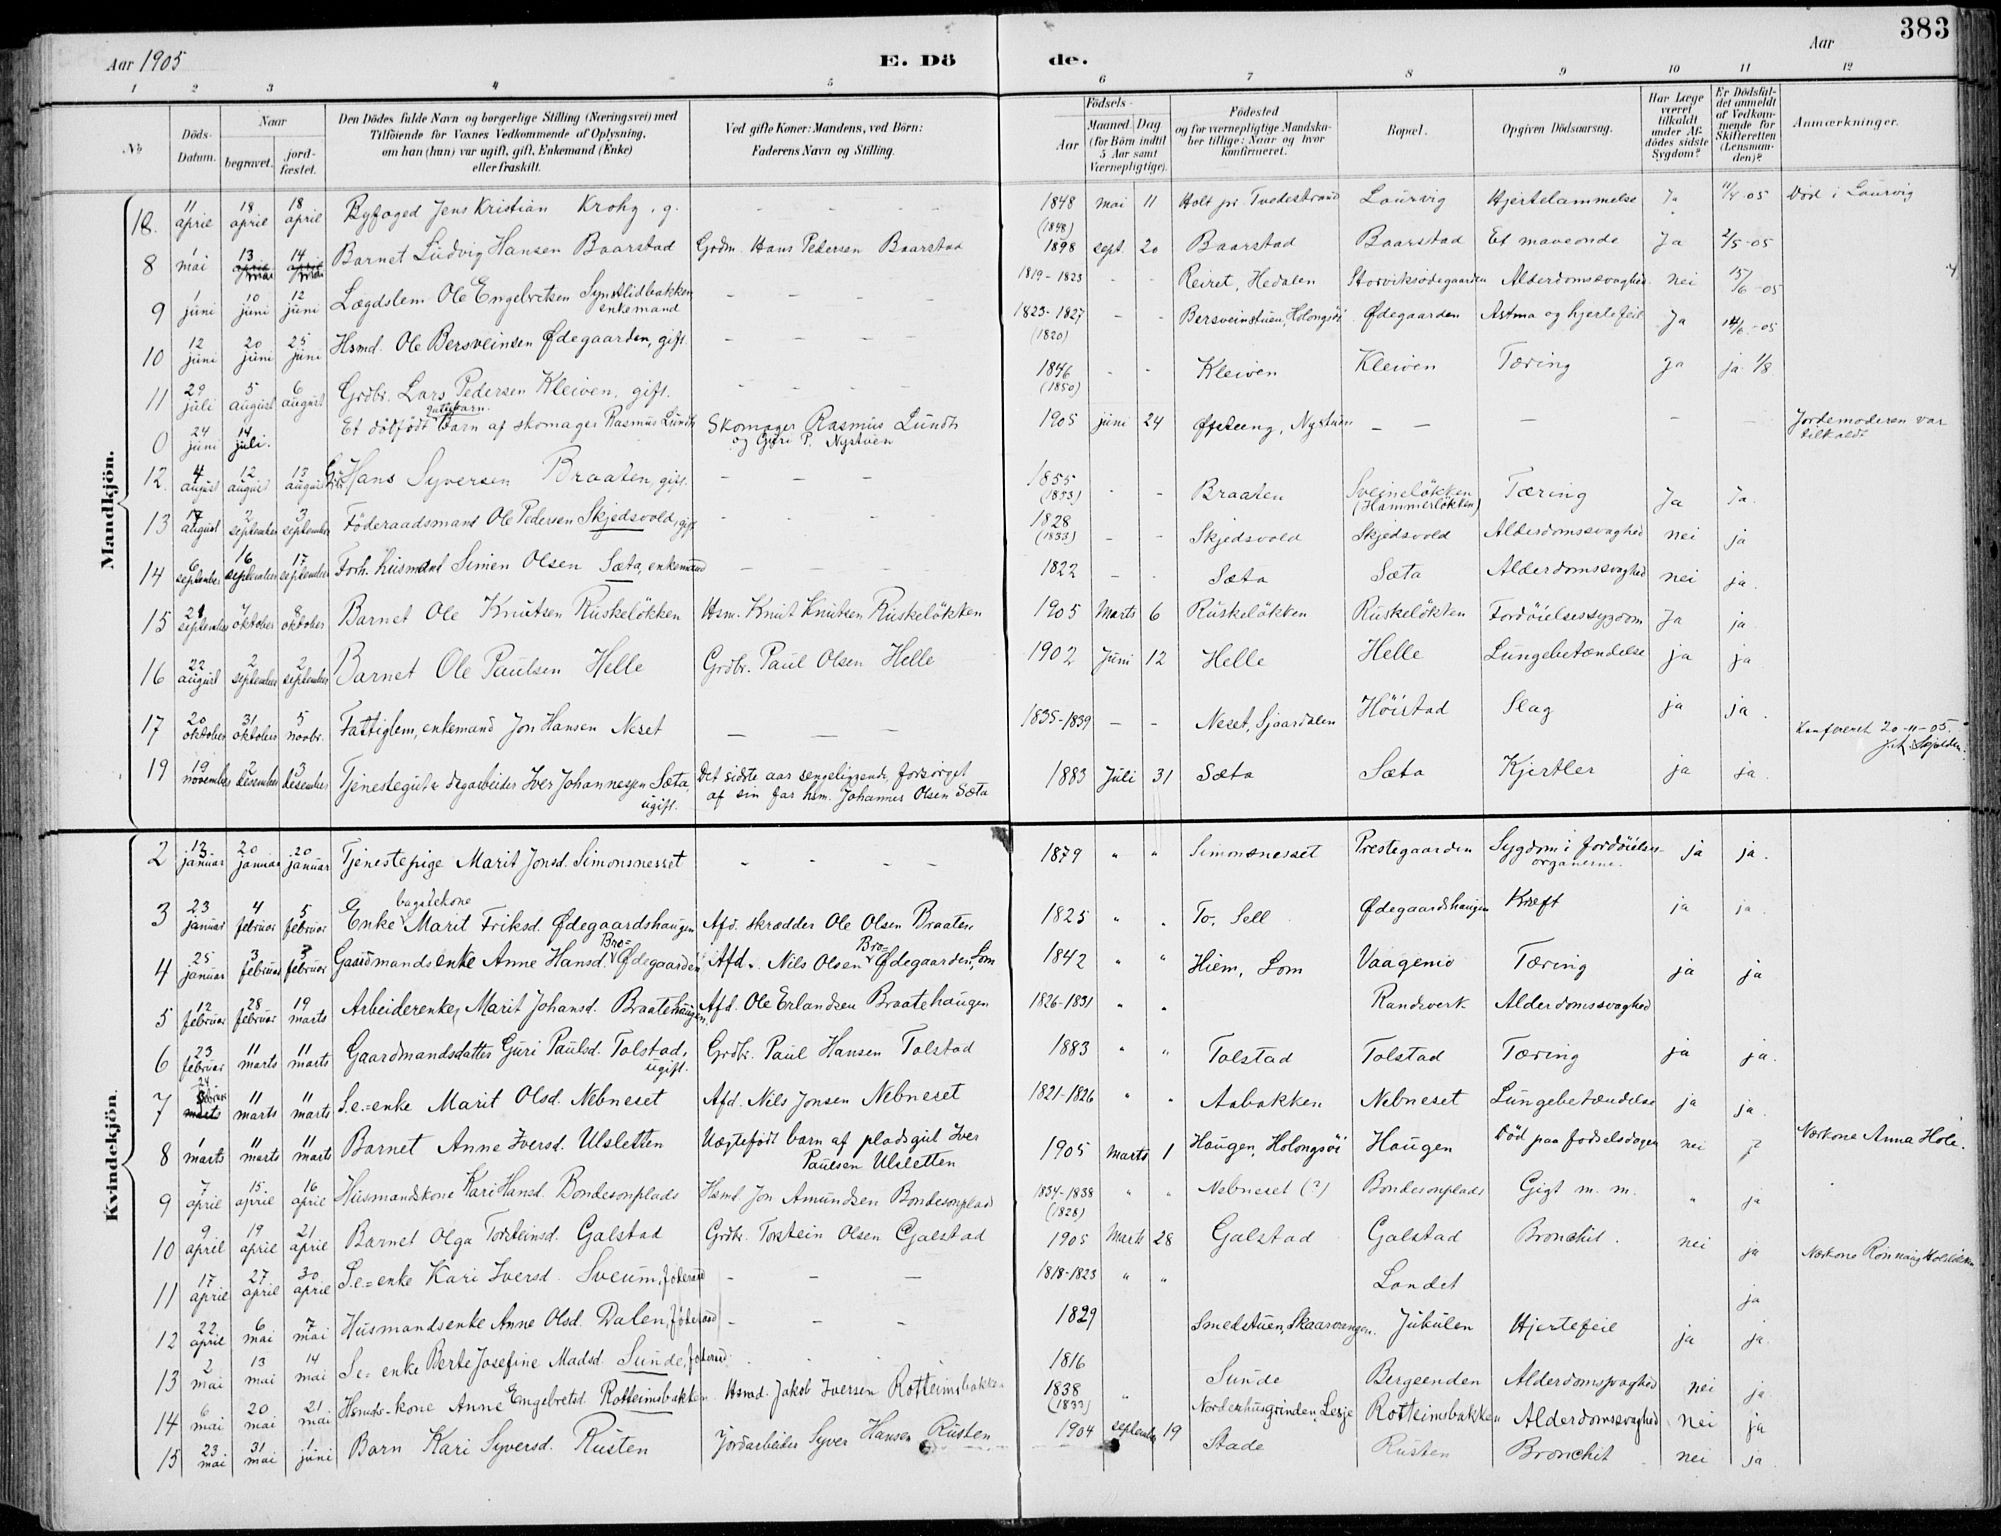 383
Aar 1905 E. Dö de. Aar
1 2 3 4 5 6 7 8 9 10 11 12
No
Döds-Datum.
Naar
begravet.
jord-fæstet.
Den Dödes fulde Navn og borgerlige Stilling (Næringsvei) med
Tilföiende for Voxnes Vedkommende af Oplysning,
om han (hun) var ugift, gift, Enkemand (Enke)
eller fraskilt.
Ved gifte Koner: Mandens, ved Börn:
Faderens Navn og Stilling.
Födsels-
Aar
Maaned Dag
(for Börn indtil
5 Aar samt
Værnepligtige).
Födested
og for værnepligtige Mandska-
ber tillige: Naar og hvor
konfirmeret.
Bopæl.
Opgiven Dödsaarsag.
Har Læge
været
tilkaldt
under Af-
dödes sidste
Sygdom?
Er Dödsfal-
det anmeldt
af Vedkom-
mende for
Skifteretten
(Lensman-
den)?
Anmærkninger.
Mandkjön.
18. 11 april 18 april 18 april Byfoged Jens Kristian Krohg, g. - - - - 1848 (1848) mai 11 Holt pr Tvedestrand Laurvig Hjertelammelse Ja 11/4-05 Död i Laurvig
8 1 mai 13 april mai 14 april mai Barnet Ludvig Hansen Baarstad Grdm. Hans Pedersen Baarstad 1898 sept. 20 Baarstad Baarstad Et maveonde Ja 2/5-05
9 1 juni 10 juni 12 juni Lægdslem Ole Engebretsen Synstlidbakken enkemand - - - - 1819-1823 - - Reiret, Hedalen Storviksödegaarden Alderdomssvaghed nei 15/6-05
10 12 juni 20 juni 25 juni Hsmd. Ole Bersveinsen Ødegaarden, gift. - - - - 1823-1827 (1820) - - Bersveinstuen, Holongsöi Ødegaarden Astma og hjertefeil Ja 14/6-05
11 29 juli 5 august 6 august Grdbr. Lars Pedersen Kleiven, gift. - - - - 1846 (1850) - - Kleiven Kleiven Tæring Ja ja 1/8
0 24 juni 14 juli. Et dödfödt gutebarn barn af skomager Rasmus Lundh Skomager Rasmus Lundh og Guri P. Nystuen 1905 juni 24 Nystuen - - - - - Jordemoderen var tilkaldt
12. 4 august 12 august 13 august Grdbr. Hans Syversen Braaten, gift. - - - 1855 (1853) - - Braaten Sveineløkken (Hammerløkken) Tæring Ja Ja.
13 17 august 2 september 3 september Föderaadsmand Ole Pedersen Skjedsvold, gift - - - - 1828 (1833) - - Skjedsvold Skjedsvold Alderdomssvaghed nei ja
14 6 september 16 september 17 september Forh. husmand Simen Olsen Sæta, enkemand - - - 1822 - - Sæta Sæta Alderdomssvaghed nei ja.
15 21 september 7 oktober 8 oktober Barnet Ole Knutsen Ruskeløkken Hsm. Knut Knutsen Ruskeløkken 1905 Marts 6 Ruskeløkken Ruskeløkken Fordöielsessygdom Ja ja
16 22 august 2 september 2 september Barnet Ole Paulsen Helle Grdbr. Paul Olsen Helle 1902 Juni 12 Helle Helle Lungebetændelse ja ja
17 20 oktober 31 oktober 5 novbr. Fattiglem, enkemand Jon Hansen Neset - - - 1835-1839 - - Neset, Sjaardalen Höistad Slag ja ja. Konfereret 20-11-05.
19 19 november 2 desember 3 desember Tjenestegut & dagarbeider Iver Johannessen Sæta, ugift. Det sidste aar sengeliggende, forsørget af sin far hsm. Johannes Olsen Sæta 1883 Juli 31 Sæta Sæta Kjertler ja ja.
Kvindekjön.
2 13 januar 20 januar 20 januar Tjenestepige Marit Jonsd. Simonsnesset - - - - 1879 " " Simonsnesset Prestegaarden Sygdom i fordöielsesorganerne. ja ja.
3 23 januar 4 februar 5 februar Enke bygdekone Marit Eriksd. Ødegaardshaugen Afd. skrædder Ole Olsen Braaten 1825 " " To, Sell Ødegaardshaugen Kræft ja ja
4 25 januar 3 februar 3 februar Gaardmandsenke Anne Hansd. Bro-Ødegaarden Afd. Nils Olsen Bro-Ødegaarden, Lom 1842 " " Hiem, Lom Vaagemo Tæring ja ja
5 12 februar 28 februar 19 marts Arbeiderenke, Marit Johansd. Braatehaugen. Afd. Ole Erlandsen Braatehaugen 1826-1831 " " Randsverk Alderdomssvaghed
6 23 februar 11 marts 11 marts Gaardmandsdatter Guri Paulsd. Tolstad, ugift. Grdbr. Paul Hansen Tolstad 1883 " " Tolstad Tolstad Tæring ja ja.
7 24 februar marts 11 marts 11 marts S.e.=enke Marit Olsd. Nebneset Afd. Nils Jonsen Nebneset 1821-1826 " " Aabakken Nebneset Lungebetændelse ja ja.
8 1 marts 11 marts 11 marts Barnet Anne Iversd. Ulsletten Uægtefödt barn af pladsgut Iver Paulsen Ulsletten 1905 Marts 1 Haugen, Holongsöi Haugen Död paa fødselsdagen nei ? Nærkone Anna Hole.
9 7 april 15 april 16 april Husmandskone Kari Hansd. Bondesonplads Hsmd Jon Amundsen Bondesonplads 1834-1838 (1828) " " Nebneset (?) Bondesonplads Gigt m. m. " ja
10 9 april 19 april 21 april Barnet Olga Torsteinsd. Galstad Grdbr. Torstein Olsen Galstad 1905 Marts 28 Galstad Galstad Bronchit. nei ja Nærkone Rönnaug
11 17 april 27 april 30 april S.e.=enke Kari Iversd. Sveum, föderaad - - - 1818-1823 " " Landet ja
12 22 april 6 mai 7 mai Husmandsenke Anne Olsd. Dalen, föderaad - - - 1829 Smedstuen, Skaarvangen. Jukulen Hjertefeil ja ja.
13 2 mai 13 mai 14 mai S.e= enke Berte Josefine Madsd. Sunde, föderaad. 1816 Sunde Bergeenden Alderdomssvaghed nei ja
14 6 mai 20 mai 21 mai Hsmds-kone Anne Engebretsd. Rotteimsbakken Hsmd. Jakob Iversen Rotteimsbakken 1838 (1832) " Nordenhusgrinden, Lesje Rotteimsbakken Alderdomssvaghed Nei ja
15 23 mai 31 mai 1 juni Barn Kari Syversd. Rusten Jordarbeider Syver Hansen Rusten 1904 september 19 Stade Rusten Bronchit nei ja.